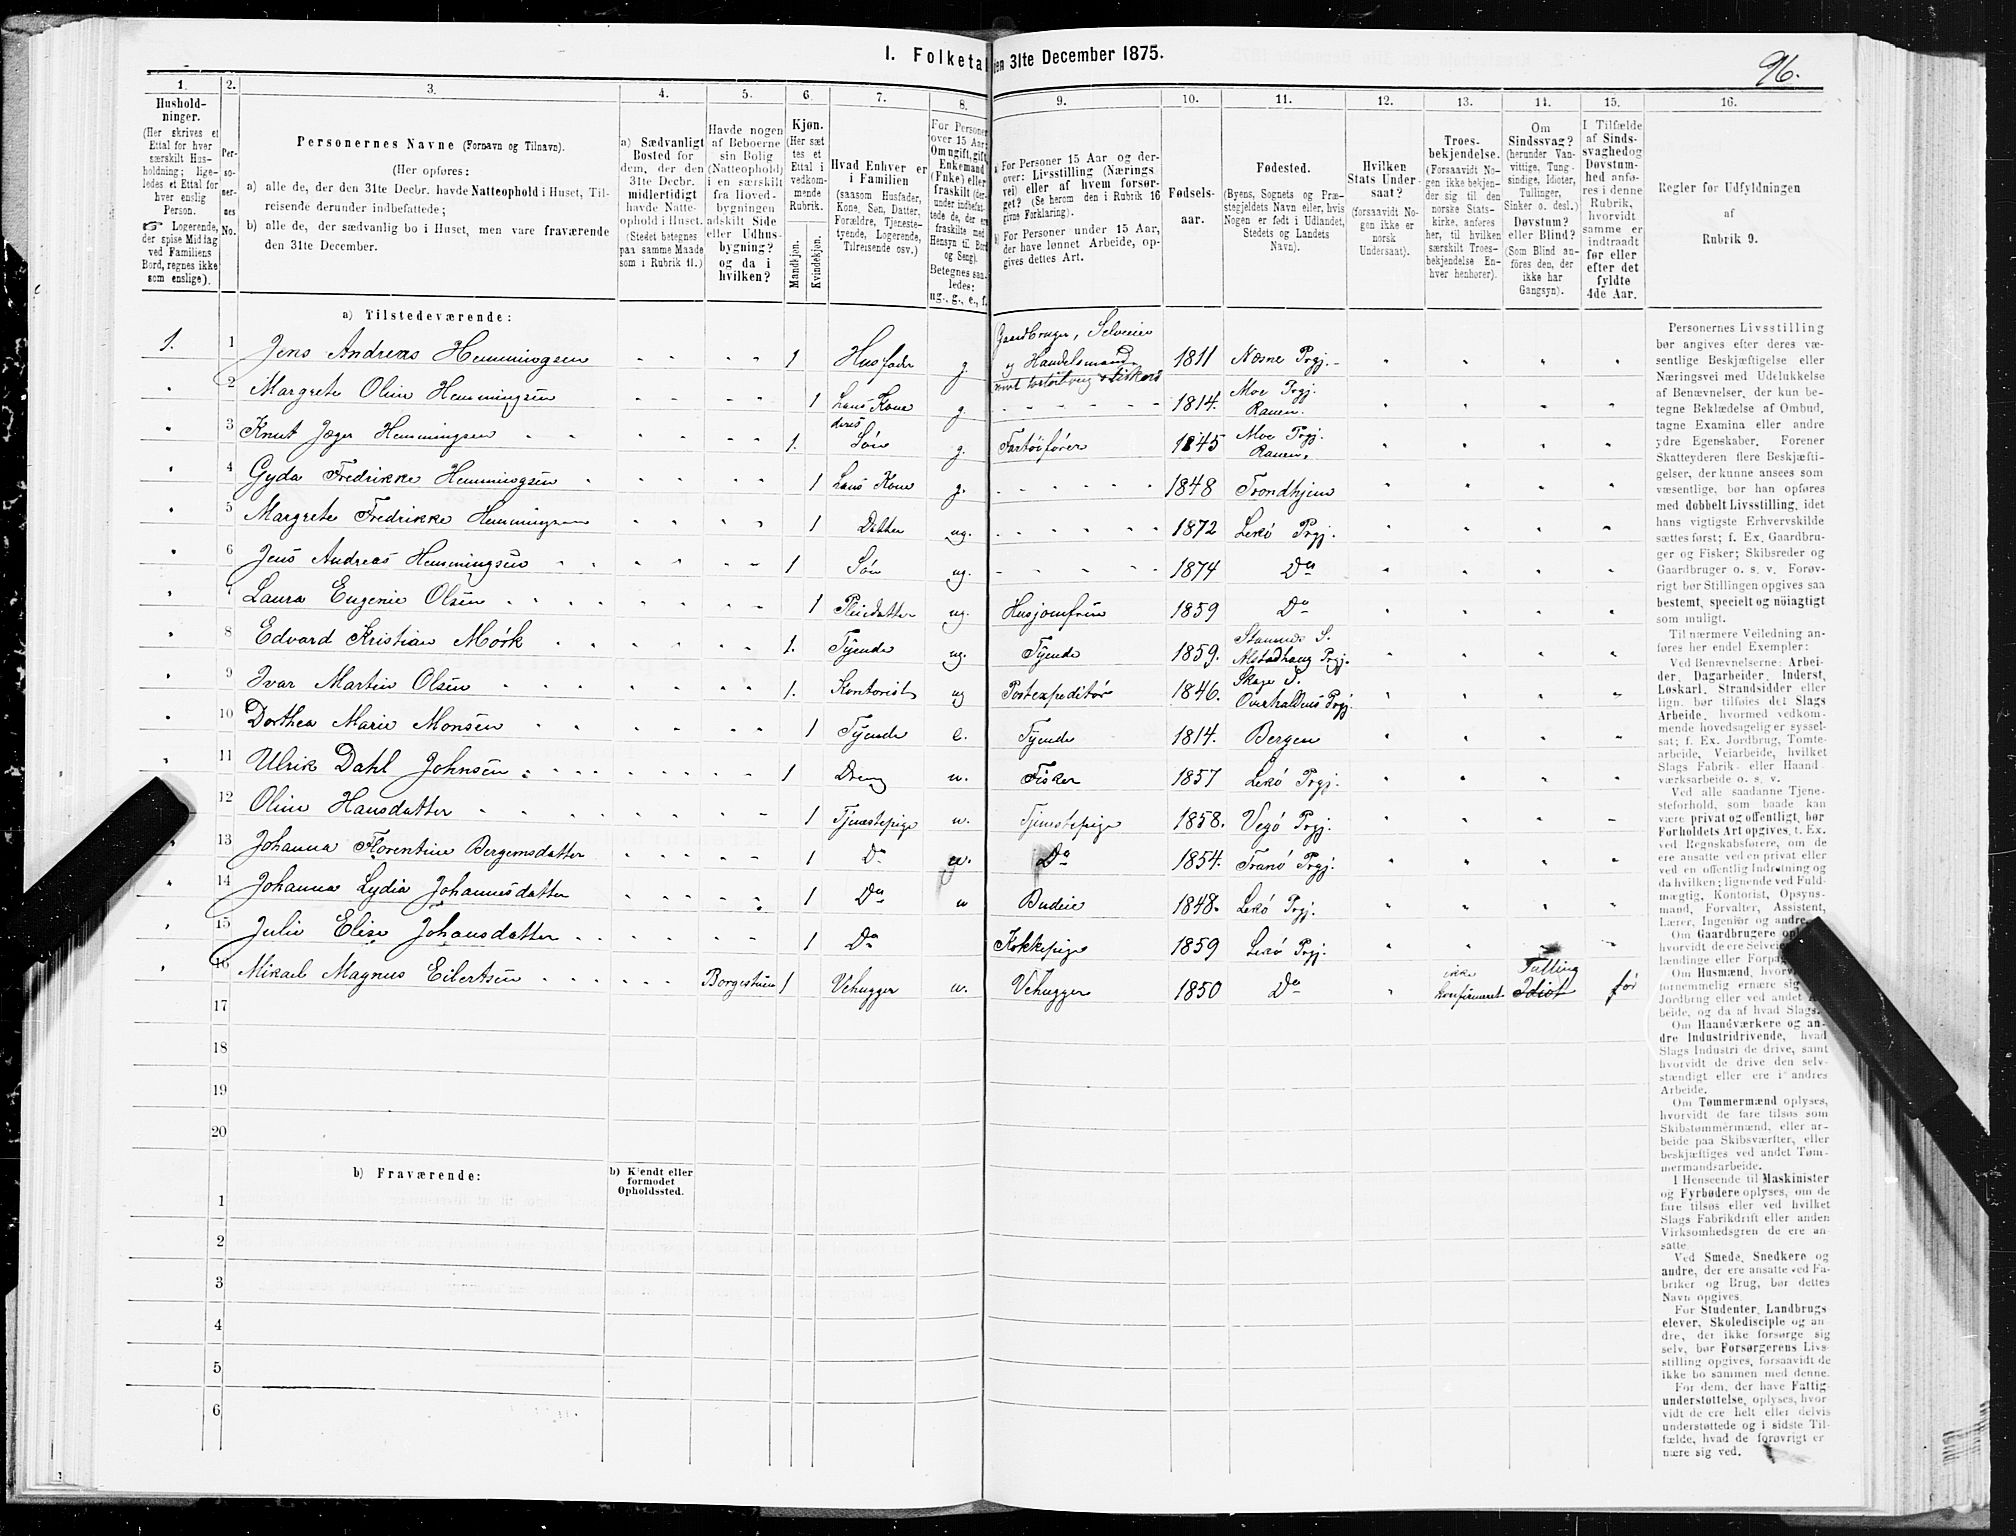 I. Folketal den 31te December 1875.
96.
1. 2. 3. 4. 5. 6. 7. 8. 9. 10. 11. 12. 13. 14. 15. 16.
Hushold-
ninger.
(Her skrives et
Ettal for hver
særskilt Hus-
holdning; lige-
ledes et Ettal for
hver enslig
Person.
☞ Logerende,
der spise Middag
ved Familiens
Bord, regnes ikke
som enslige).
Per-
so-
ner-
nes
No.
Personernes Navne (Fornavn og Tilnavn).
(Her opføres:
a) alle de, der den 31te Decbr. havde Natteophold i Huset, Til-
reisende derunder indbefattede;
b) alle de, der sædvanlig bo i Huset, men vare fraværende
den 31te December.
a) Sædvanligt
Bosted for
dem, den den
31te Decbr.
midlertidigt
havde Natte-
ophold i Huset.
(Stedet betegnes
paa samme Maade
som i Rubrik 11.)
Havde nogen
af Beboerne
sin Bolig
(Natteophold)
i en særskilt
fra Hoved-
bygningen
adskilt Side
eller Udhus-
bygning?
og da i
hvilken?
Kjøn.
(Her sæt
tes et
Ettal i
vedkom-
mende
Rubrik.
Mandkjøn.
Kvindekjøn.
Hvad Enhver er
i Familien
(saasom Husfader,
Kone, Søn, Datter,
Forældre, Tjeneste-
tyende, Logerende,
Tilreisende osv.)
For Personer
over 15 Aar:
Om ugift, gift,
Enkemand
(Enke) eller
fraskilt (der-
under indbefat-
tede de, der er
fraskilte med
Hensyn til Bord
og Seng).
Betegnes saa-
ledes:
ug., g., e., f.
a) For Personer 15 Aar og der-
over: Livsstilling (Nærings
vei) eller af hvem forsør-
get? (Se herom den i Rubrik 16
givne Forklaring).
b) For Personer under 15 Aar,
der have lønnet Arbeide, op-
gives dettes Art.
Fødsels-
aar.
Fødested.
(Byens, Sognets og Præ-
stegjeldets Navn eller, hvis
Nogen er født i Udlandet,
Stedets og Landets
Navn).
Hvilken
Stats Under-
saat?
(forsaavidt No-
gen ikke er
norsk
Undersaat).
Troes-
bekjendelse.
(Forsaavidt No-
gen ikke bekjen-
der sig til den
norske Stats-
kirke, anføres
her, til hvilken
særskilt Troes-
bekjendelse En-
hver henhører).
Om
Sindssvag?
(herunder Van-
vittige, Tung-
sindige, Idioter,
Tullinger,
Sinker o. desl.)
Døvstum?
eller Blind?
(Som Blind an-
føres den, der
ikke har
Gangsyn).
I Tilfælde
af Sinds-
svaghed og
Døvstum-
hed anfø-
res i denne
Rubrik,
hvorvidt
samme er
indtraadt
før eller
efter det
fyldte
4de Aar.
Regler før Udfyldningen
af
Rubrik 9.
a) Tilstedeværende:
1. 1 Jens Andreas Hemmingsen 1 Husfader g. Gaardbruger, Selveier y Handelsmand 1811 Næsne Prgj.
2 Margrete Oline Hemmingsen 1 hans Kone g 1814. Moe Prgj. Ranen.
3 Knut Jæger Hemmingsen 1. deres Søn g. Fartøifører 1845 Moe Prgj. Ranen.
4 Gyda Fredrikke Hemmingsen 1 hans Kone g. 1848 Trondhjem
5 Margrete Fredrikke Hemmingsen 1 Datter ug. 1872 Lekø Prgj.
6 Jens Andreas Hemmingsen 1 Søn ug. 1874 Do
7 Laura Eugenie Olsen 1 Pleiedatter ug. Husjomfru 1859 Do
8 Edvard Kristian Mørk 1. Tyende ug. Tyende 1859. Stamnes S. Alstadhaug Prgj.
9 Ivar Martin Olsen 1. Kontorist ug Postexpeditør 1846. Skage S. Overhaldens Prgj.
10 Dorthea Marie Monsen 1 Tyende e. Tyende 1814. Bergen
11 Ulrik Dahl Johnsen 1 Dreng u. Fisker 1857 Lekø Prgj.
12 Oline Hansdatter 1 Tjenestepige u. Tjenestepige 1858. Vegø Prgj.
13 Johanna Florentine Bergemsdatter 1 Do u. Do 1854. Tranø Prgj.
14 Johanna Lydia Johannesdatter 1 Do u Budeie 1848. Lekø Prgj.
15 Julie Elise Johansdatter 1 Do Kokkepige 1859 Lekø Prgj.
16 Mikael Magnus Eilertsen Borgestuen 1 Vehugger u. Vehugger 1850 Do ikke konfirmeret Tulling Idiot før
17
18
19
20
b) Fraværende:
b) Kjendt eller
formodet
Opholdssted.
1
2
3
4
5
6
Personernes Livsstilling
bør angives efter deres væ-
sentlige Beskjæftigelse eller
Næringsvei med Udelukkelse
af Benævnelser, der kun be-
tegne Beklædelse af Ombud,
tagne Examina eller andre
ydre Egenskaber. Forener
Skatteyderen flere Beskjæfti-
gelser, der kunne ansees som
væsentlige, bør han opføres
med dobbelt Livsstilling, idet
hans vigtigste Erhvervskilde
sættes først; f. Ex. Gaardbru-
ger og Fisker; Skibsreder og
Gaardbruger o. s. v. Forøv-
rigt bør Stillingen opgives saa
bestemt, specielt og nøiagtigt
som muligt.
Til nærmere Veiledning an-
føres her endel Exempler:
Ved Benævnelserne: Arbei-
der, Dagarbeider, Inderst,
Løskarl, Strandsidder eller
lign. bør tilføies det Slags
Arbeide, hvormed vedkom-
mende hovedsagelig er syssel-
sat; f. Ex. Jordbrug, Tomte-
arbeide, Veiarbeide, hvilket
Slags Fabrik- eller Haand-
værksarbeide o. s. v.
Ved alle saadanne Tjene-
steforhold, som baade kan
være privat og offentligt, bør
Forholdets Art opgives, t. Ex.
ved Regnskabsførere, om de
ere ansatte ved en privat eller
ved en offentlig Indretning og
da hvilken; lignende ved Fuld-
mægtig, Kontorist, Opsyns-
mand, Forvalter, Assistent,
Lærer, Ingeniør og andre.
Om Gaardbrugere
hvorvidt de ere Selveiere
lændinge eller
Om Husmænd,
fornemmelig ernære sig
Jordbrug eller ved andet
beide, og da af hvad Slags.
Om Haandværkere og an-
dre Industridrivende, hvad
Slags Industri de drive, samt
hvorvidt de drive den selv-
stændigt eller ere i andres
Arbeide.
Om Tømmermænd oplyses,
hvorvidt de fare tilsøs som
Skibstømmermænd, eller ar-
beide paa Skibsværfter, eller
beskjæftiges ved andet Tøm-
mermandsarbeide.
I Henseende til Maskinister
og Fyrbødere oplyses, om de
fare tilsøs eller ved hvilket
Slags Fabrikdrift eller anden
Virksomhedsgren de ere an-
satte
Ved Smede, Snedkere og
andre, der ere ansatte ved Fa-
briker og Brug, bør dettes
Navn opgives.
For Studenter, Landbrugs
elever, Skoledisciple og an-
dre, der ikke forsørge sig
selv, bør Forsørgerens Livs-
stilling opgives, forsaavidt de
ikke bo sammen med denne.
For dem, der have Fattig
understøttelse, oplyses, hvor
vidt de ere helt eller delvis
understøttede og i sidste Til-
fælde, hvad de forøvrigt er
nære sig ved.